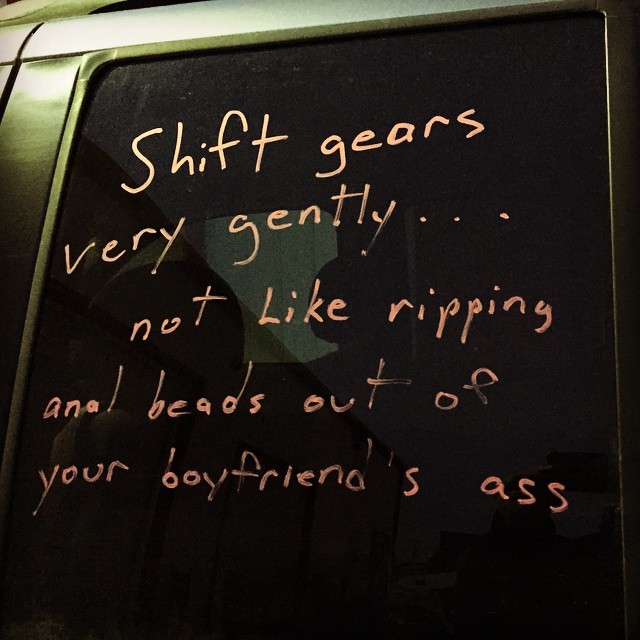 Shift gears
very gently....
not Like ripping
anal beads out of
your boyfriend's ass